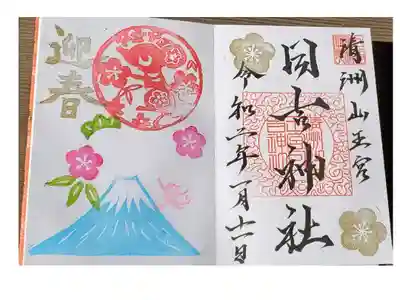 清洲山王宮
日吉神社
令和二年一月十一日
迎春